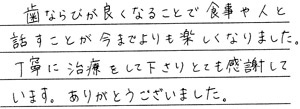 歯ならびが良くなることで食事や人と
話すことが今までよりも楽しくなりました。
丁寧に治療をして下さりとても感謝して
います。ありがとうございました。